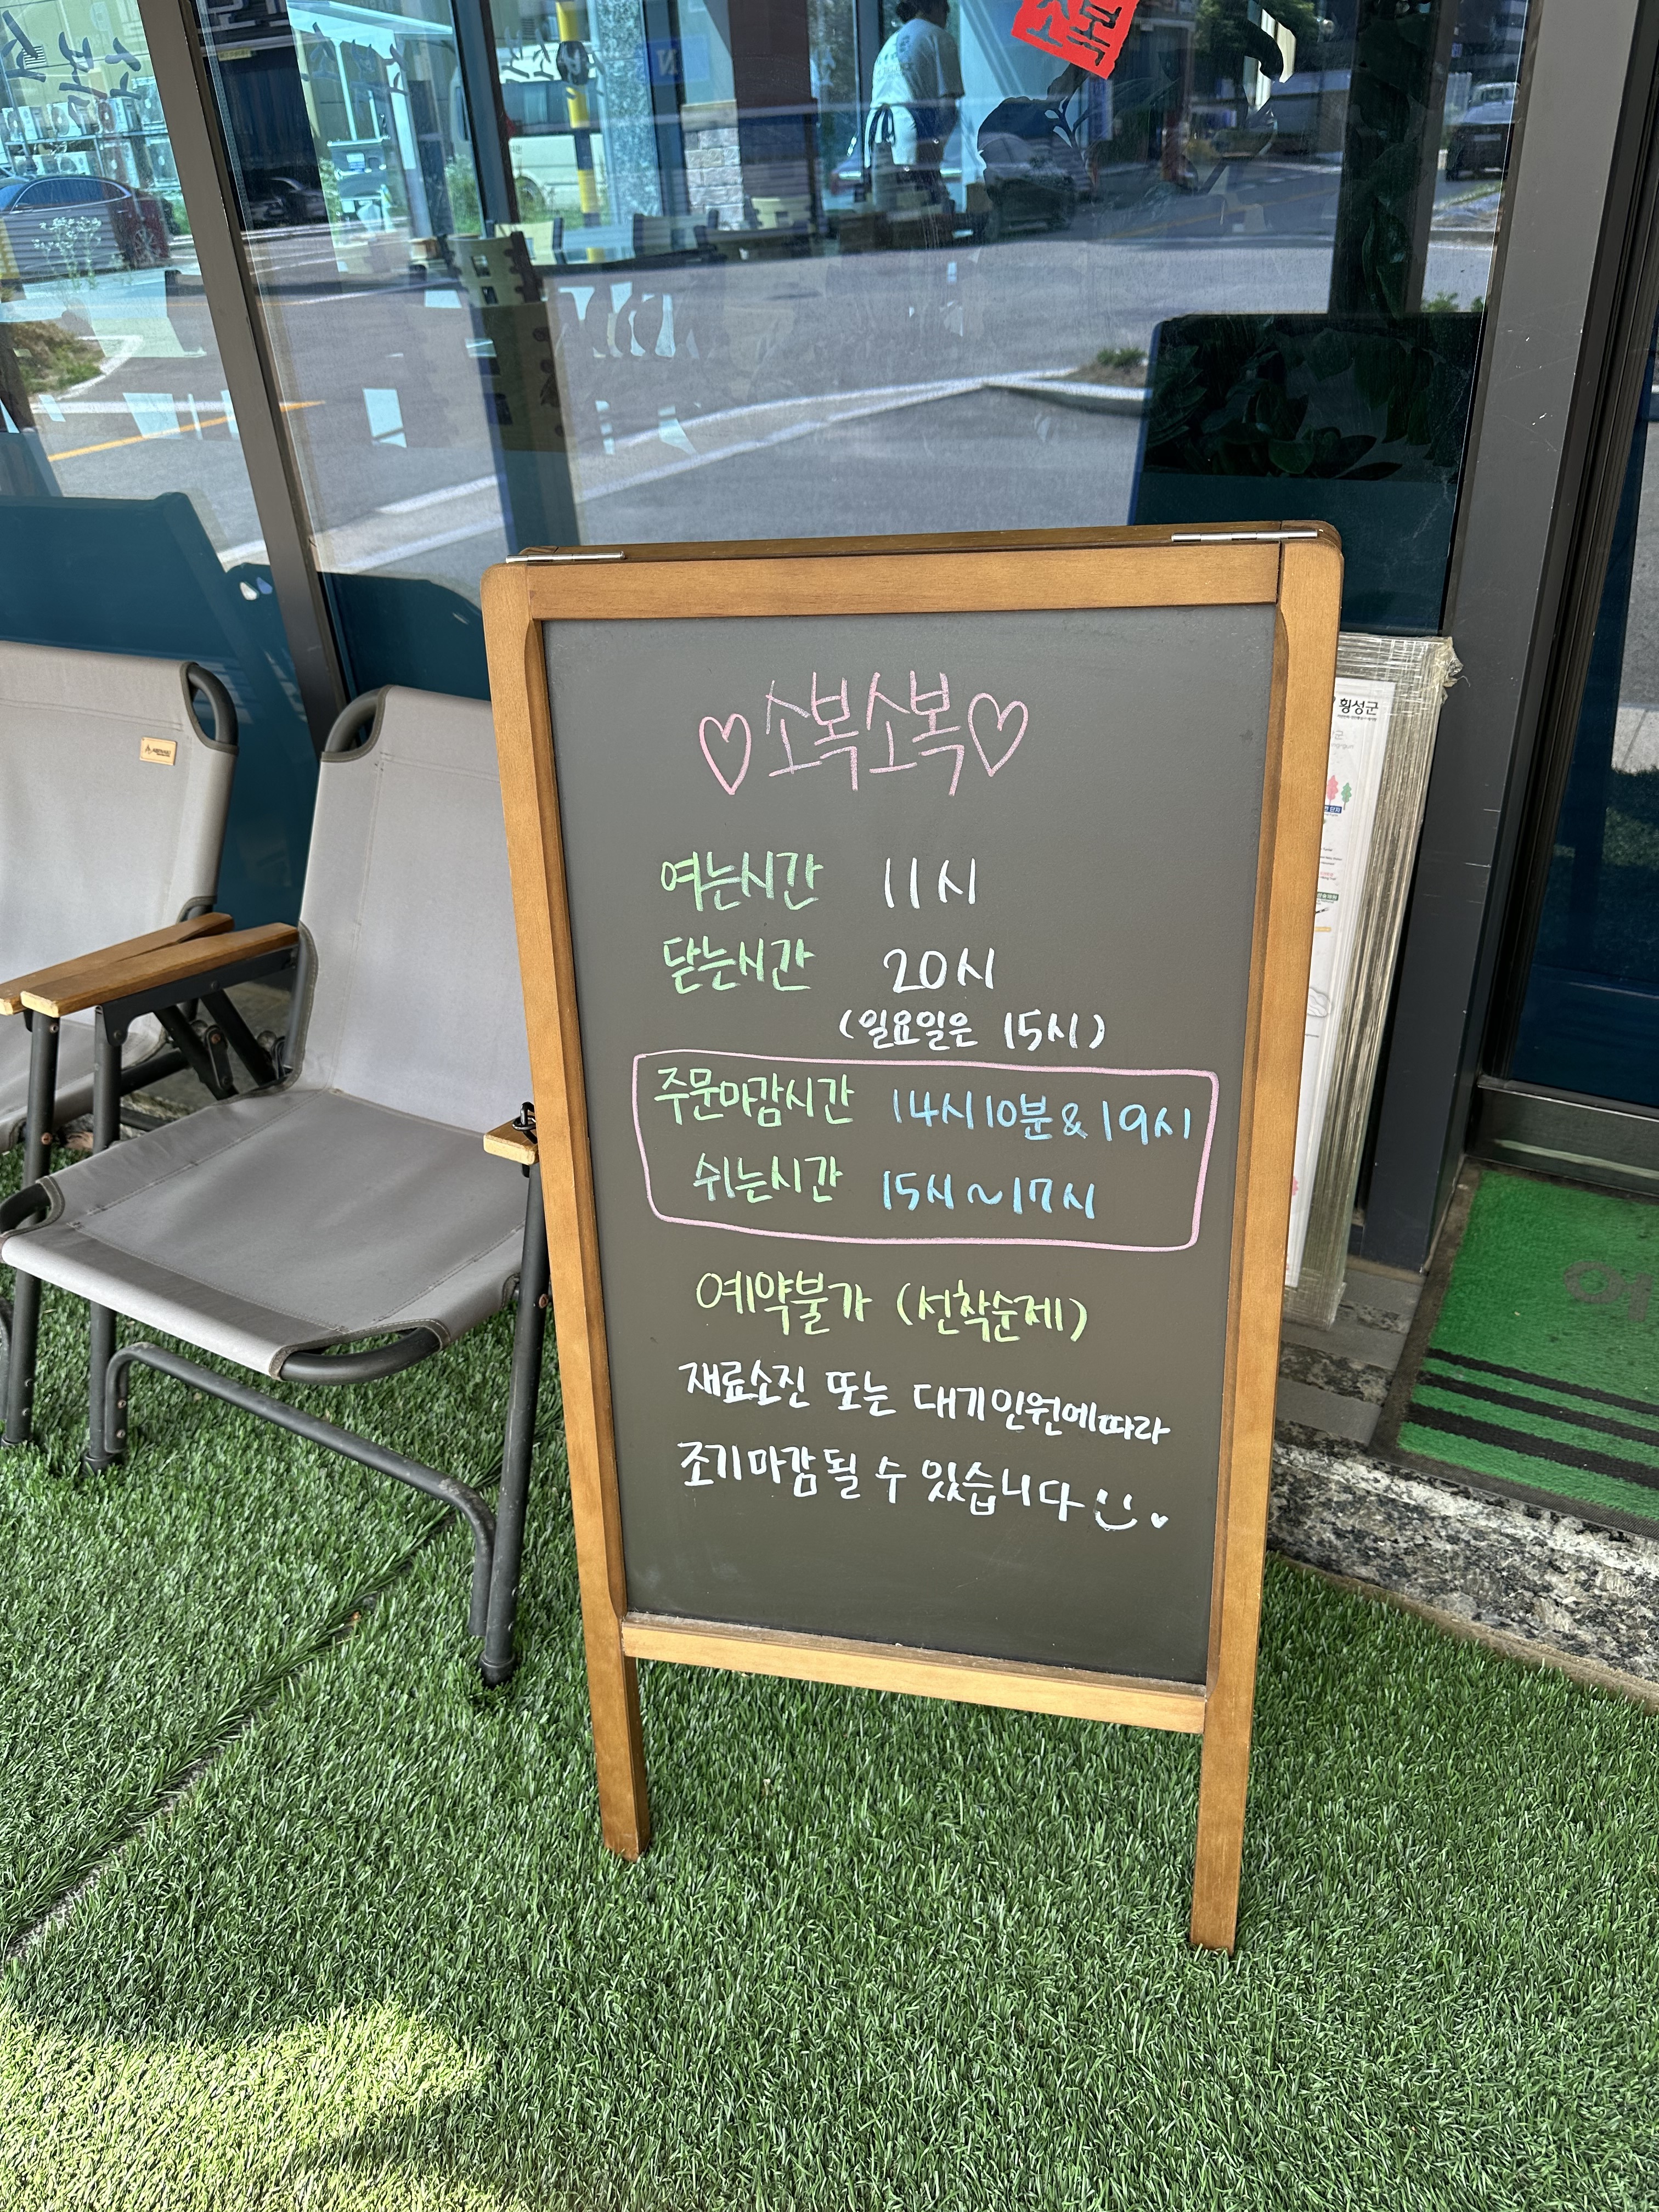 소복
♡소복소복♡
여는시간 11시
닫는시간 20시
(일요일은 15시)
주문마감시간 14시10분 & 19시
쉬는시간 15시~17시
예약불가 (선착순제)
재료소진 또는 대기인원에따라
조기마감될 수 있습니다
횡성군
어